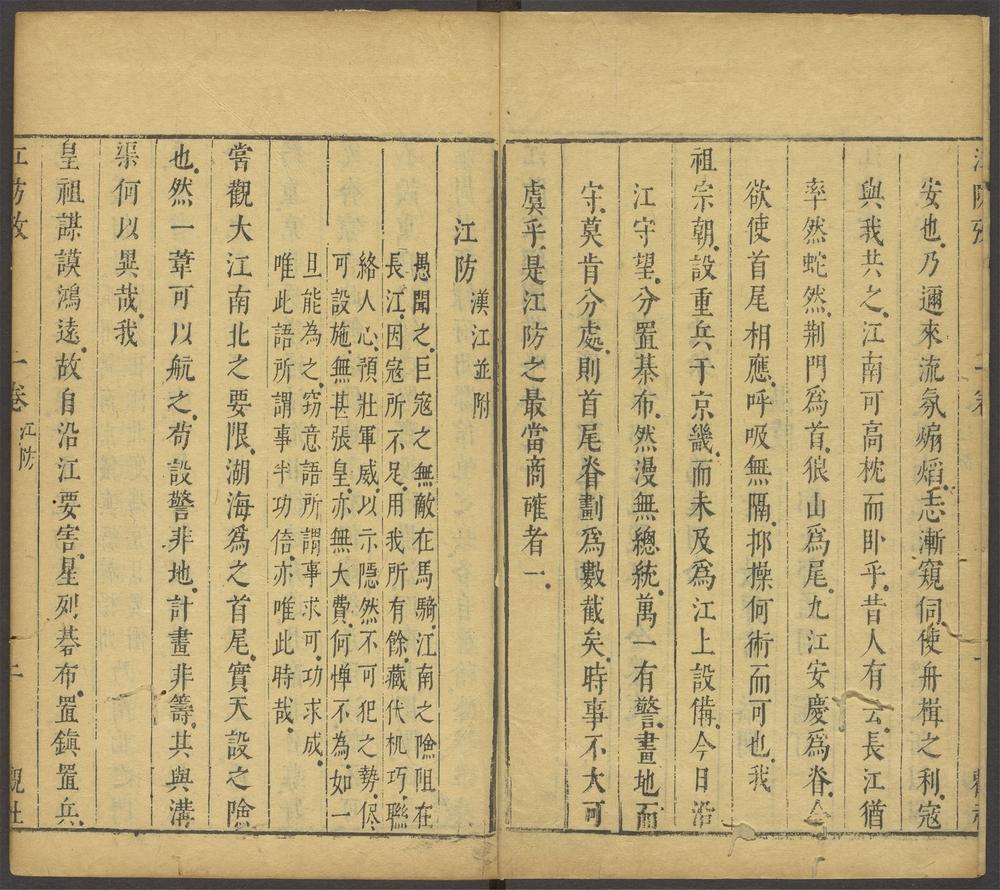 安也乃邇來流氛煽熖志漸窺伺使舟楫之利寇
與我共之江南可高枕而卧乎昔人有云長江猶
率然蛇然荆門爲首狼山爲尾九江安慶爲脊今
欲使首尾相應呼吸無隔抑操何術而可也我
祖宗朝設重兵于京畿而未及爲江上設備今日沿
江守望分置棊布然漫無總統萬一有警畫地而
守莫肯分處則首尾脊劃爲數截矣時事不大可
虞乎是江防之最當商確者一
江防 漢江並附
愚聞之巨寇之無敵在馬騎江南之險阻在
長江因寇所不足用我所有餘藏代机巧聯
絡人心預壯軍威以示隱然不可犯之勢侭
可設施無甚張皇亦無大費何憚不為如一
旦能為之窃意語所謂事求可功求成
唯此語所謂事半功倍亦唯此時哉
嘗觀大江南北之要限湖海爲之首尾實天設之險
也然一葦可以航之苟設警非地計畫非籌其與溝
渠何以異哉我
皇祖謀謨鴻遠故自沿江要害星列碁布置鎮置兵
江防攷 一卷 江防 二